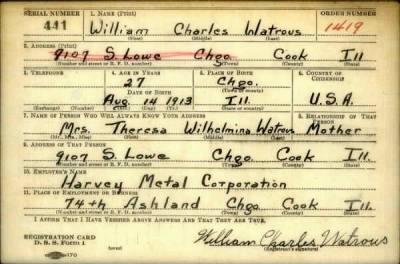 SERIAL NUMBER 1. NAME (Print) ORDER NUMBER
441 William Charles Watrous 1419
(First) (Middle) (Last)
2. ADDRESS (Print)
9107 S. Lowe Chgo. Cook Ill
(Number and street or R. F. D. number) (Town) (County) (State)
3. TELEPHONE 4. AGE IN YEARS 5. PLACE OF BIRTH 6. COUNTRY OF CITIZENSHIP
27 Chgo.
DATE OF BIRTH (Town or county)
Aug. 14 1913 Ill. U.S.A.
(Exchange) (Number) (Mo.) (Day) (Yr.) (State or country)
7. NAME OF PERSON WHO WILL ALWAYS KNOW YOUR ADDRESS 8. RELATIONSHIP OF THAT PERSON
Mrs. Theresa Wilhelmina Watrous Mother
(Mr., Mrs., Miss) (First) (Middle) (Last)
9. ADDRESS OF THAT PERSON
9107 S. Lowe Chgo. Cook Ill.
(Number and street or R. F. D. number) (Town) (County) (State)
10. EMPLOYER'S NAME
Harvey Metal Corporation
11. PLACE OF EMPLOYMENT OR BUSINESS
74th Ashland Chgo. Cook Ill.
(Number and street or R. F. D. number) (Town) (County) (State)
I AFFIRM THAT I HAVE VERIFIED ABOVE ANSWERS AND THAT THEY ARE TRUE.
REGISTRATION CARD
D. S. S. FORM 1 (over) William Charles Watrous
(Registrant's signature)